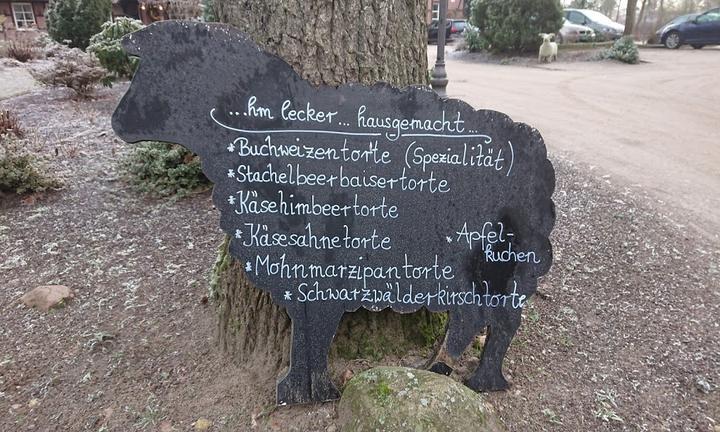 ...hm lecker... hausgemacht...
* Buchweizentorte (Spezialität)
* Stachelbeerbaisertorte
* Käsehimbeertorte
* Käsesahnetorte
* Apfel-
kuchen
* Mohnmarzipantorte
* Schwarzwälderkirschtorte